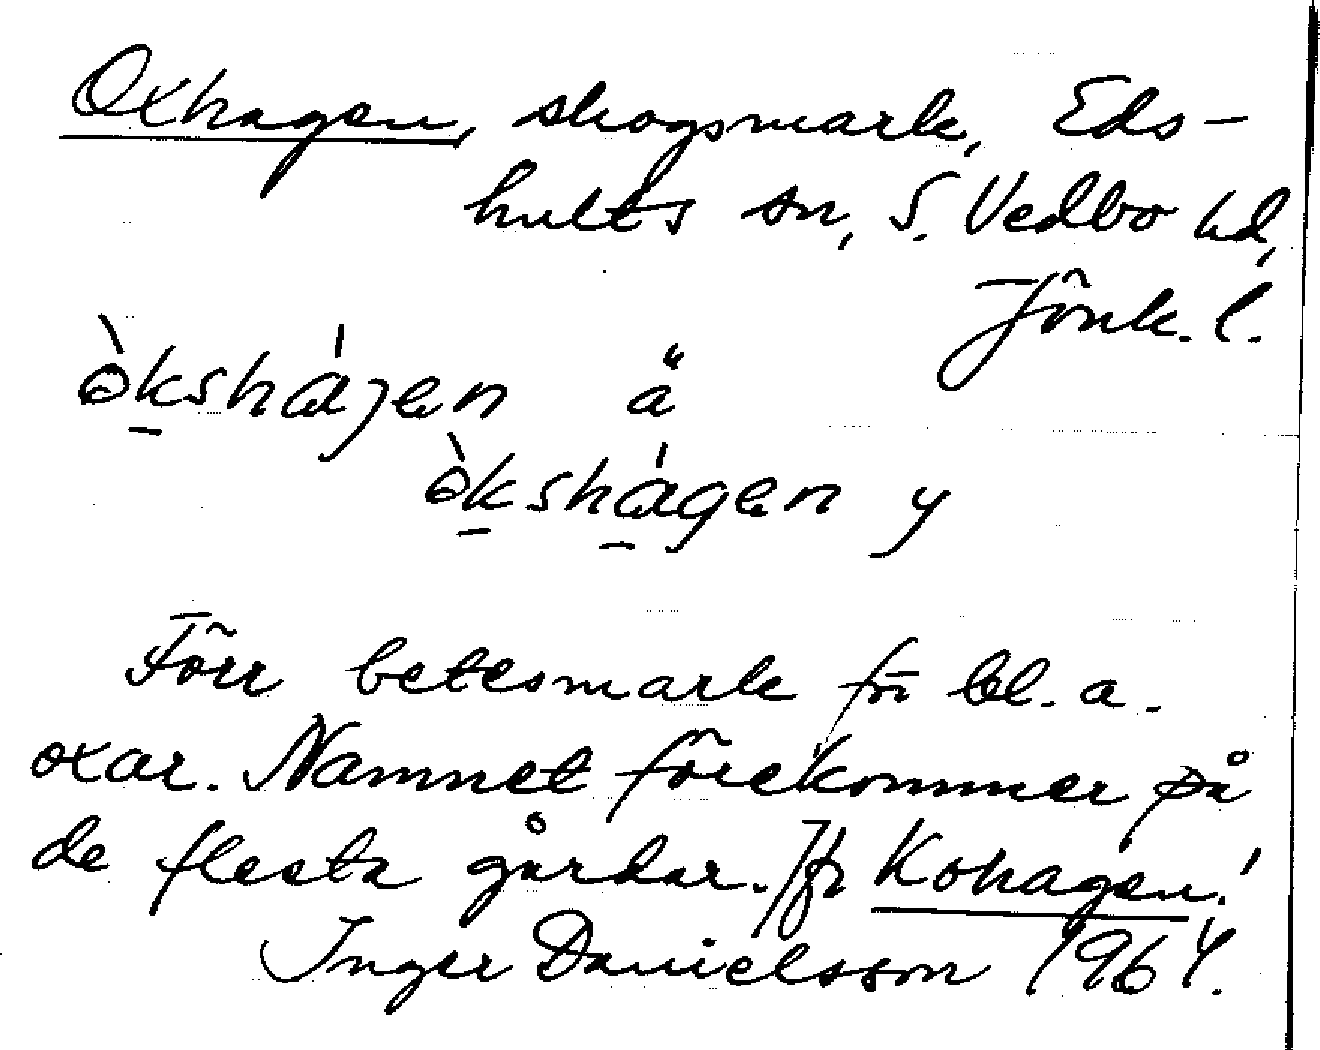 Oxhagen, skogsmark, Eds-
hults sn, S. Vedbo hd,
Jönk. l.
òkshájen ä
òkshágen y
Förr betesmark för bl. a.
oxar. Namnet förekommer på
de flesta gårdar. Jfr Kohagen!
Inger Danielsson 1964.